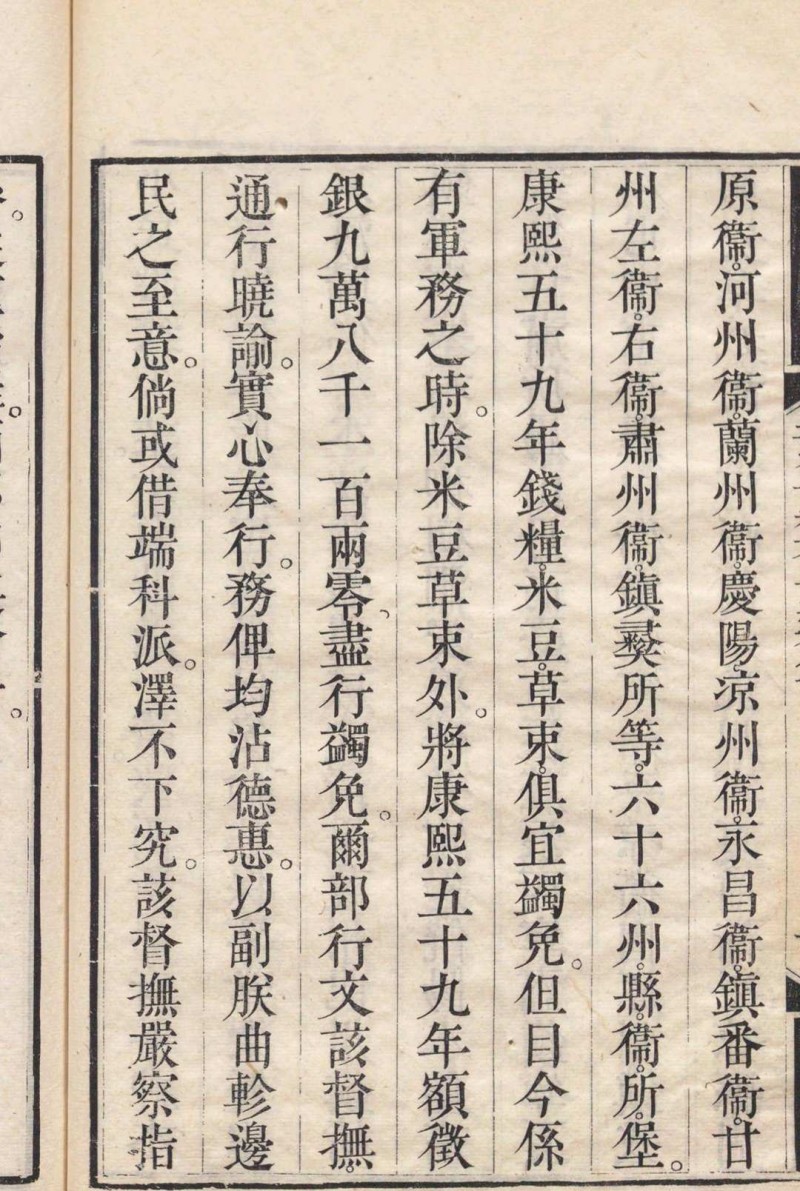 原衞。河州衞。蘭州衞。慶陽。凉州衞。永昌衞。鎮番衞。甘
州左衞。右衞。肅州衞。鎮彝所等。六十六州。縣。衞。所。堡。
康熙五十九年錢糧。米豆。草束。俱宜蠲免。但目今係
有軍務之時。除米豆草束外。將康熙五十九年額徵
銀九萬八千一百兩零、盡行蠲免。爾部行文該督撫。
通行曉諭。實心奉行。務俾均沾德惠。以副朕曲軫邊
民之至意。倘或借端科派。澤不下究。該督撫嚴察指